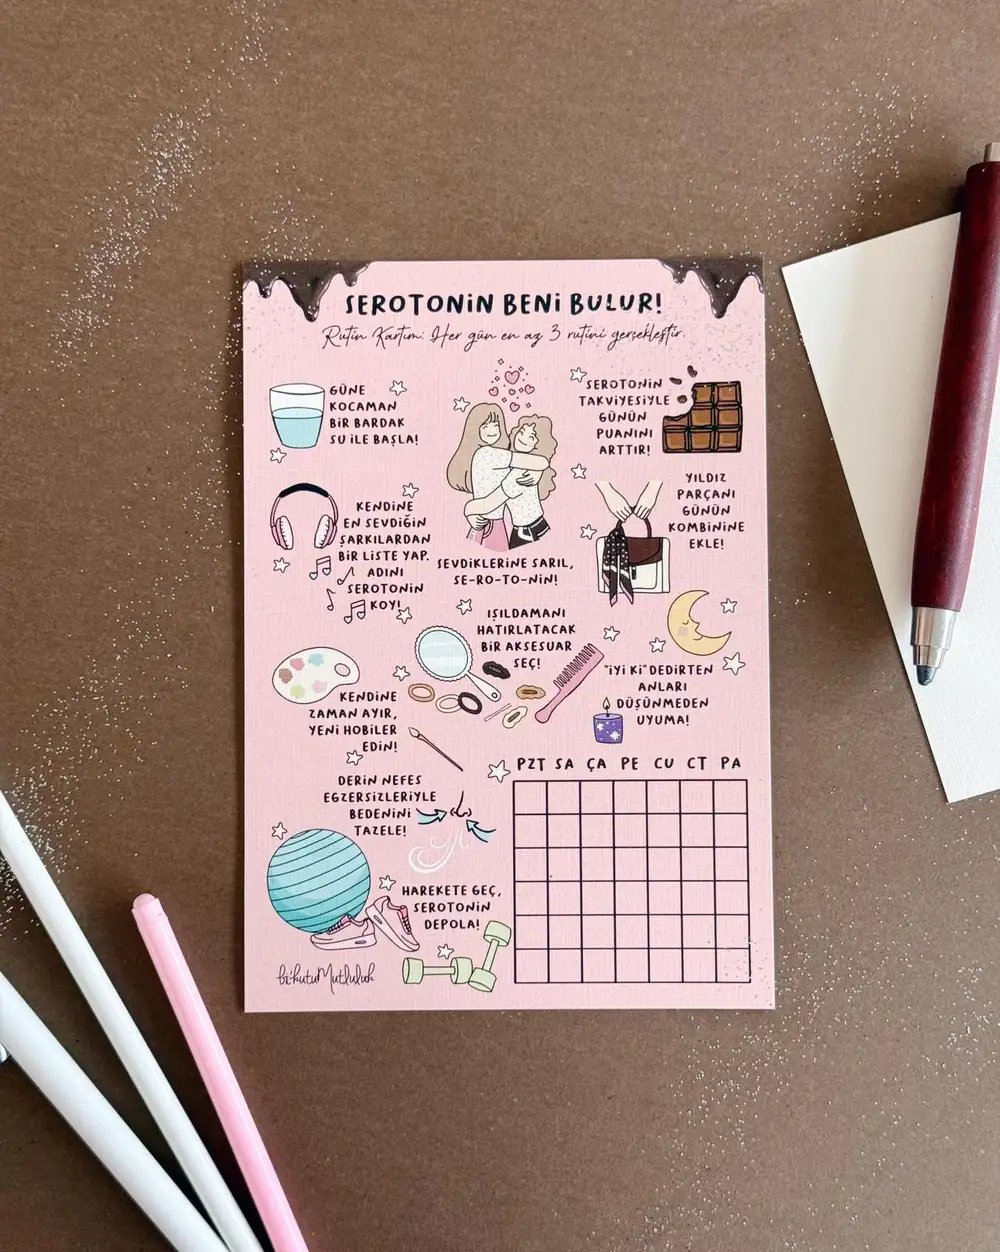 SEROTONİN BENİ BULUR!
Rutin Kartım: Her gün en az 3 rutini gerçekleştir.
GÜNE
KOCAMAN
BİR BARDAK
SU İLE BAŞLA!
SEROTONİN
TAKVİYESİYLE
GÜNÜN
PUANINI
ARTTIR!
KENDİNE
EN SEVDİĞİN
ŞARKILARDAN
BİR LİSTE YAP.
ADINI
SEROTONİN
KOY!
SEVDİKLERİNE SARIL,
SE-RO-TO-NİN!
YILDIZ
PARÇANI
GÜNÜN
KOMBİNİNE
EKLE!
IŞILDAMANI
HATIRLATACAK
BİR AKSESUAR
SEÇ!
KENDİNE
ZAMAN AYIR,
YENİ HOBİLER
EDİN!
"İYİ Kİ" DEDİRTEN
ANLARI
DÜŞÜNMEDEN
UYUMA!
DERİN NEFES
EGZERSİZLERİYLE
BEDENİNİ
TAZELE!
HAREKETE GEÇ,
SEROTONİN
DEPOLA!
PZT SA ÇA PE CU CT PA
bi'kutuMutluluk